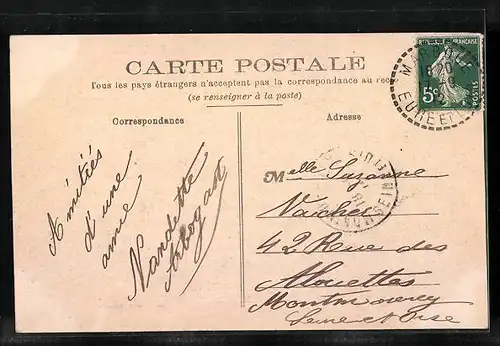 CARTE POSTALE
Tous les pays étrangers n'acceptent pas la correspondance au recto
(se renseigner à la poste)
Correspondance
Adresse
Amitiés
d'une
amie
Nandette
Arbogast
Melle Suzanne
Vachel
42 Rue des
Alouettes
Montmorency
Seine et Oise
REPUBLIQUE FRANÇAISE
5c
POSTES
EURE ET